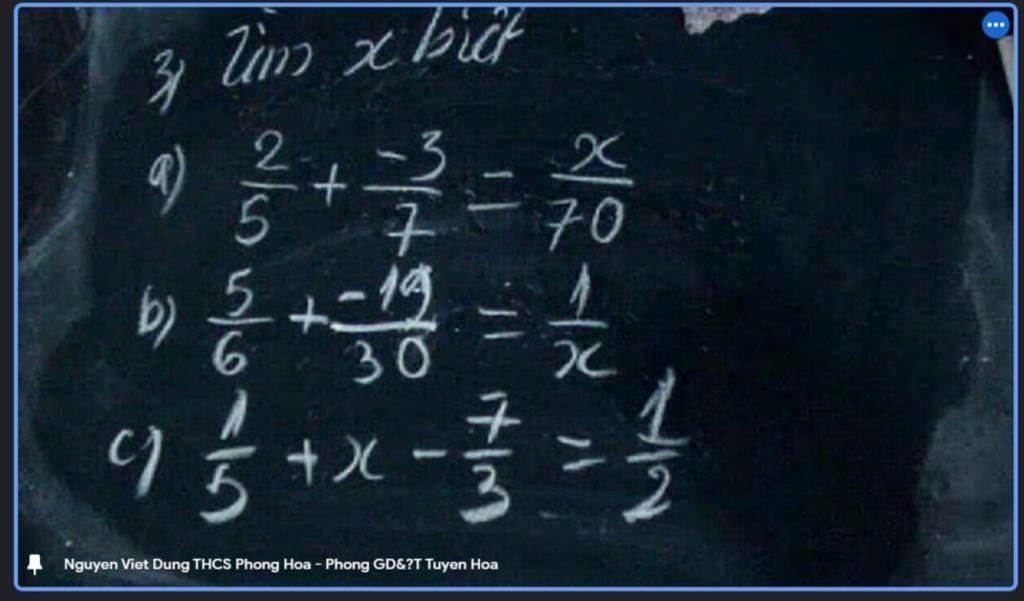 3) Tìm x biết
a) 2/5 + -3/7 = x/70
b) 5/6 + -19/30 = 1/x
c) 1/5 + x - 7/3 = 1/2
Nguyen Viet Dung THCS Phong Hoa - Phong GD&?T Tuyen Hoa